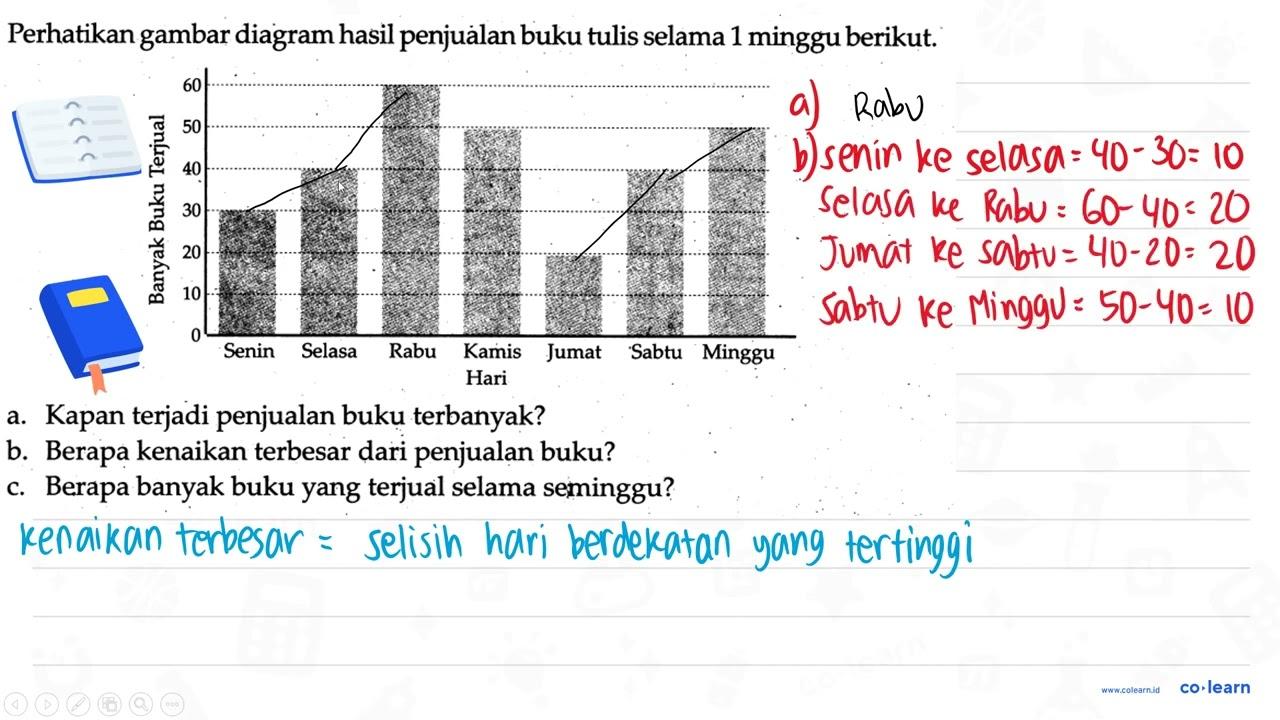 Perhatikan gambar diagram hasil penjualan buku tulis selama 1 minggu berikut.
Banyak Buku Terjual
60
50
40
30
20
10
0
Senin Selasa Rabu Kamis Jumat Sabtu Minggu
Hari
a) Rabu
b) senin ke selasa = 40 - 30 = 10
Selasa ke Rabu = 60 - 40 = 20
Jumat ke sabtu = 40 - 20 = 20
Sabtu ke Minggu = 50 - 40 = 10
a. Kapan terjadi penjualan buku terbanyak?
b. Berapa kenaikan terbesar dari penjualan buku?
c. Berapa banyak buku yang terjual selama seminggu?
kenaikan terbesar = selisih hari berdekatan yang tertinggi
www.colearn.id co learn